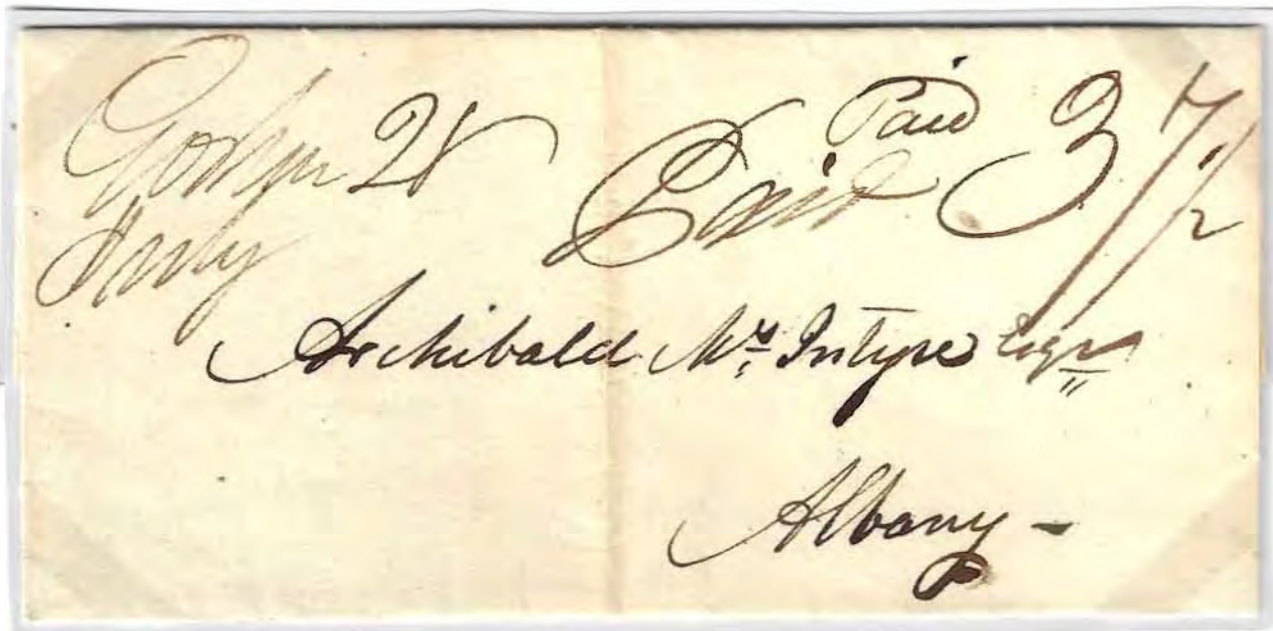 Goshen 28
July
Paid
Paid 37 1/2
Archibald Mc Intyre Esqr
Albany -